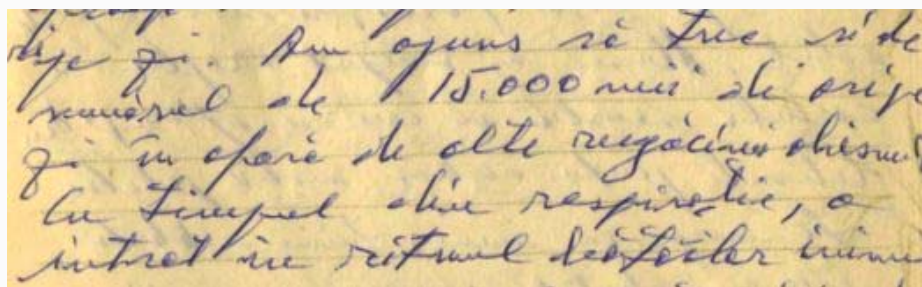 zi. Am ajuns să trec și de
numărul de 15.000 mii de ori pe
zi în afară de alte rugăciuni obișnui
Cu timpul din respirație, a
intrat în ritmul bătăilor inimi